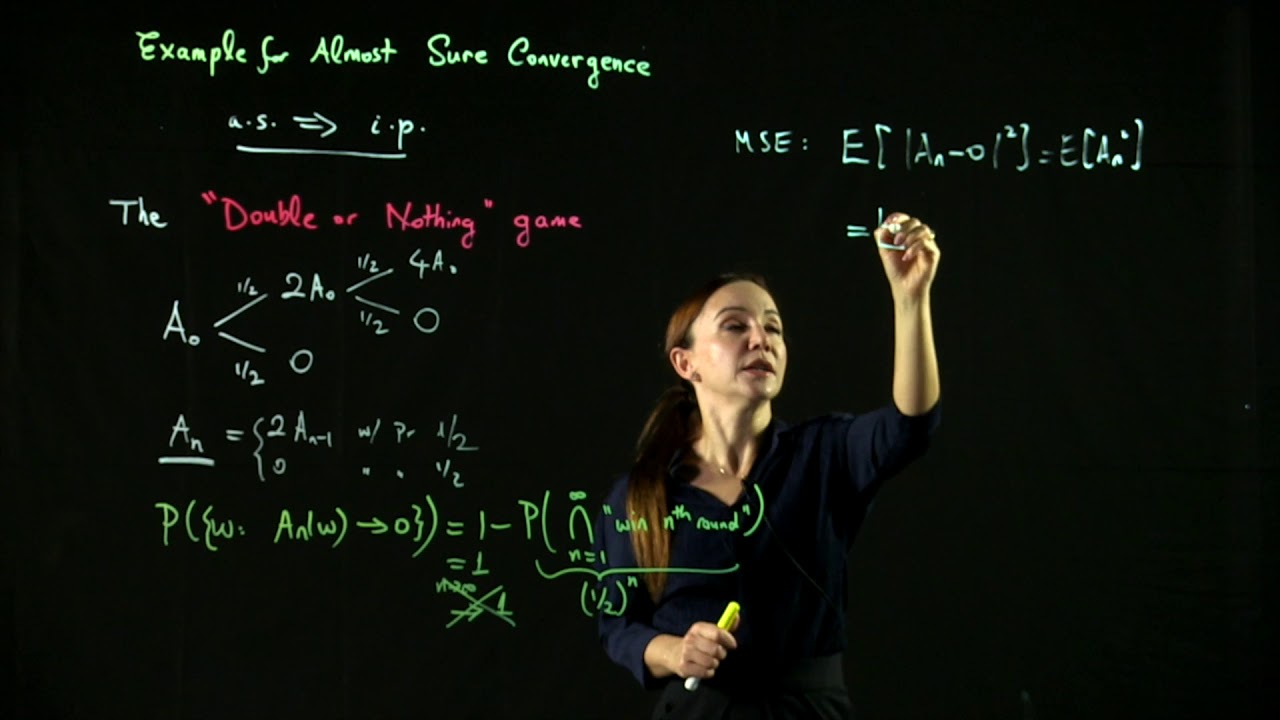 Example for Almost Sure Convergence
a.s. ⇒ i.p.
MSE: E[|Aₙ-0|²]=E[Aₙ²]
=
The "Double or Nothing" game
A₀ 1/2 2A₀ 1/2 4A₀
1/2 0 1/2 0
Aₙ = { 2Aₙ₋₁ w/ Pr 1/2
0 " " 1/2
P({ω: Aₙ(ω)→0}) = 1 - P(⋂ₙ₌₁^∞ "win nᵗʰ round")
= 1 (1/2)ⁿ
n→∞ → 1